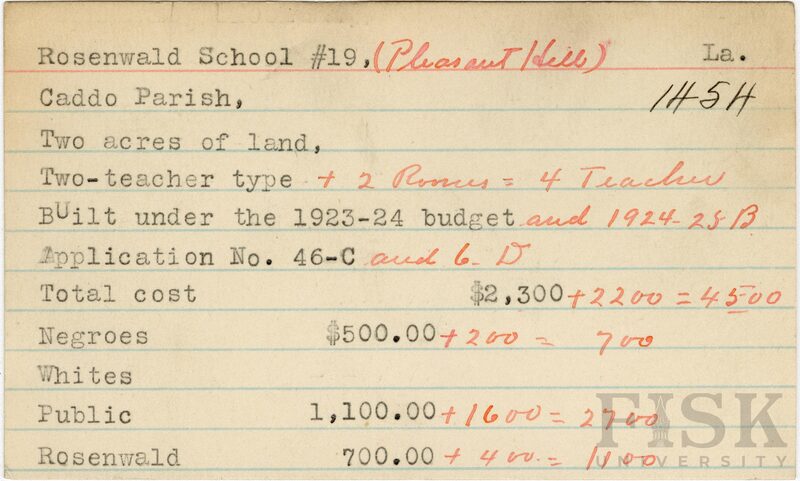 Rosenwald School #19, (Pleasant Hill) La.
Caddo Parish, 1454
Two acres of land,
Two-teacher type + 2 Rooms = 4 Teacher
Built under the 1923-24 budget and 1924-25 B.
Application No. 46-C and 6-D
Total cost $2,300 + 2200 = 4500
Negroes $500.00 + 200 = 700
Whites
Public 1,100.00 + 1600 = 2700
Rosenwald 700.00 + 400 = 1100
FISK
UNIVERSITY